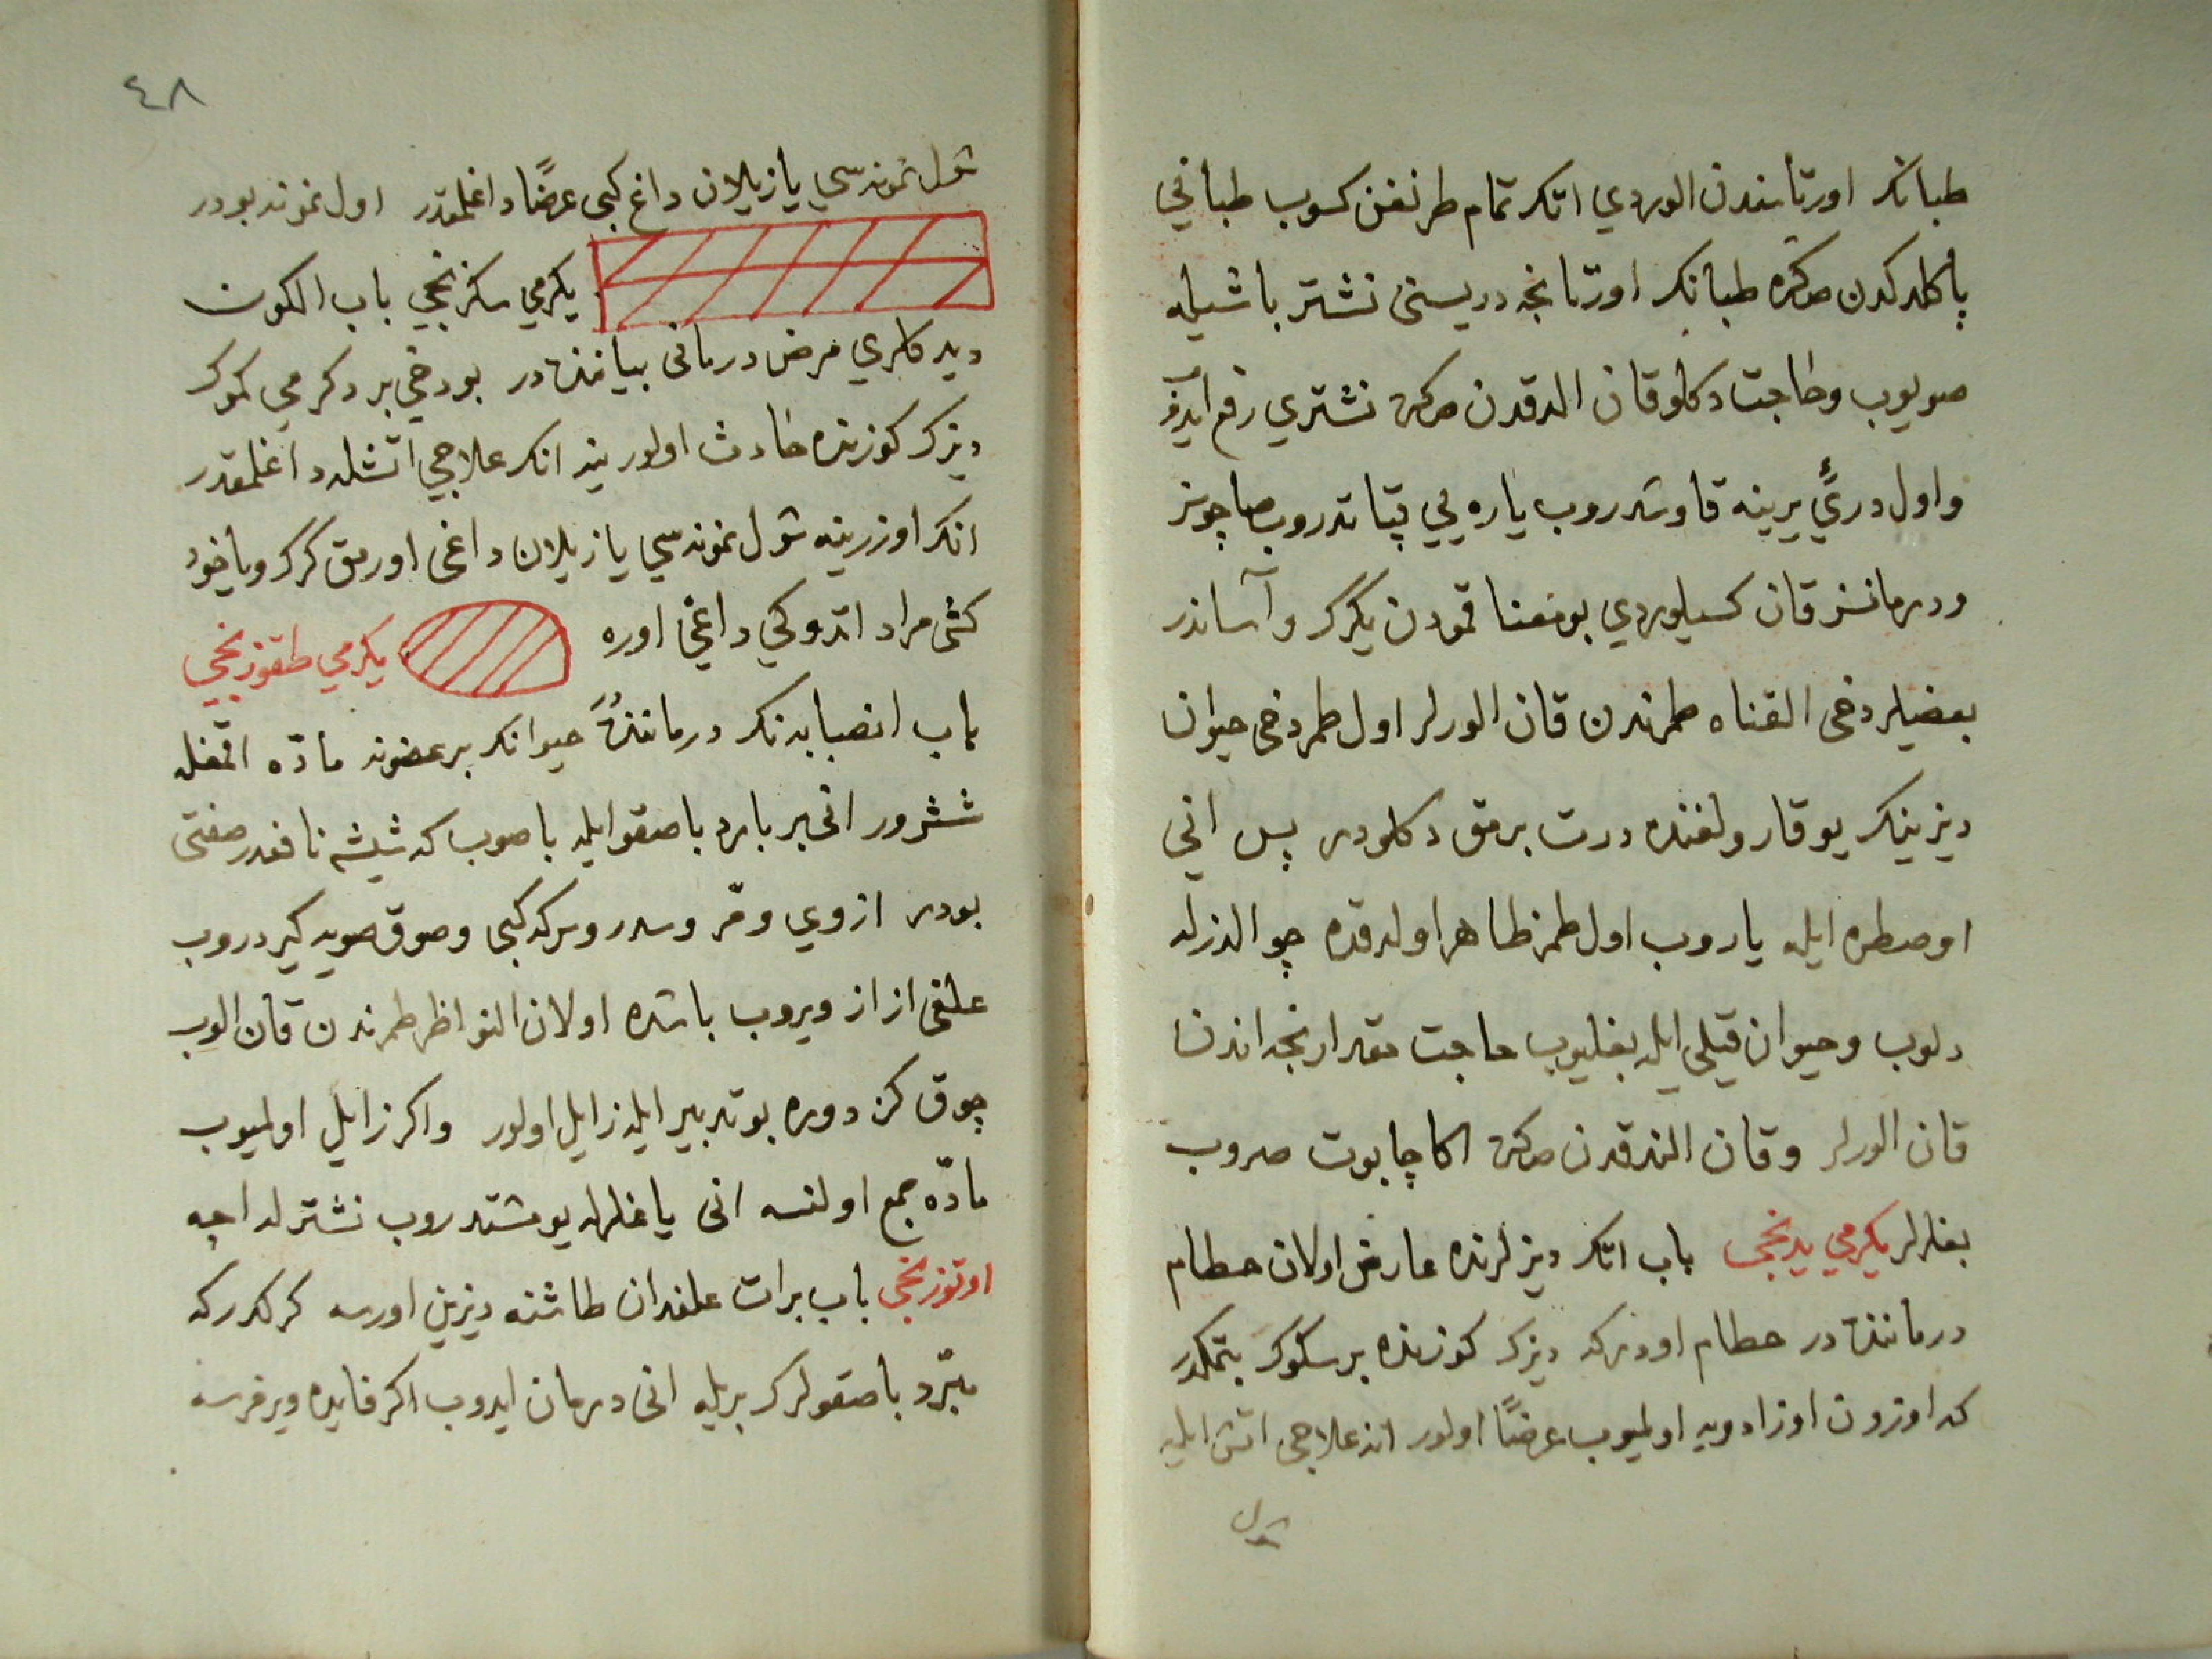 طبانڭ اورتاسندن الوردي اتك تمام طرنغن كسوب طباني
پاكلدكدن صكره طبانڭ اورتانجه دريسنى نشتر باشيله
صويوب وحاجت دكلو قان الدقدن صكره نشتري رفع ايدوب
واول دريئ يرينه قاوشدروب ياره يي قپاتدروب صاچونز
ودرمانسز قان كسيلوردي بو معنا قمودن يكرك وآساندر
بعضيلر دخى القناه طمرندن قان الورلر اول طمر دخى حيوان
ديزينك يوقارولغنده درت برمق دكلودر پس اني
اوصطره ايله ياروب اول طمر ظاهر اولدقده چوالدزله
دلوب وحيوان قيلي ايله بغليوب حاجت مقدارنجه اندن
قان الورلر وقان الندقدن صكره اكا چابوت صروب
بغلرلر يكرمي يدنجى باب اتك ديزلرنده عارض اولان حطام
درماننده در حطام اودركه ديزك كوزنده بر سكوك بتمكدر
كه اوزون اوزادويه اولميوب عرضًا اولور انڭ علاجى اتش ايله
شول
٤٨
شول نمونه سي يازيلان داغ كبى عرضًا داغلمقدر اول نمونه بودر
يكرمي سكزنجي باب الكون
ديدكلري مرض درمانى بياننده در بو دخي بر دكرمي كموك
ديزك كوزنده حادث اولور ينه انك علاجي اتشله داغلمقدر
انك اوزرينه شول نمونه سي يازيلان داغى اورمق كرك وياخود
كشى مراد اتدوكي داغي اوره يكرمي طقوزنجي
باب انصبابه نك درماننده حيوانك بر عضونه مادّه اقمغله
ششرور انى بر بارد ياصقو ايله ياصوب كه شيشه نافعدر صفتى
بودر ازوي ومّر وسدر وسركه كبى وصوق صويه كيردروب
علفى از از ويروب باشده اولان النواظر طمرندن قان الوب
چوق كز دوره بو تدبير ايله زايل اولور واكر زايل اولميوب
مادّه جمع اولنسه انى ياغلرله يومشتدروب نشترله اچه
اوتوزنجى باب برات علفدان طاشنه ديزين اورسه كركدركه
مبّرد ياصقولرك بريله انى درمان ايدوب اكر فايده ويرمزسه